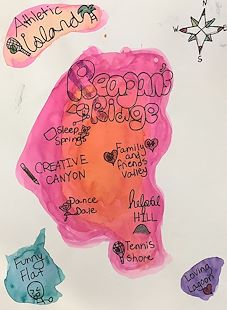 Athletic
Island
W N
S E
Reagan's
Ridge
Sleep
Springs
Family
and
friends
Valley
CREATIVE
CANYON
Dance
Dale
helpful
HILL
Tennis
Shore
Funny
Flat
Loving
Lagoon